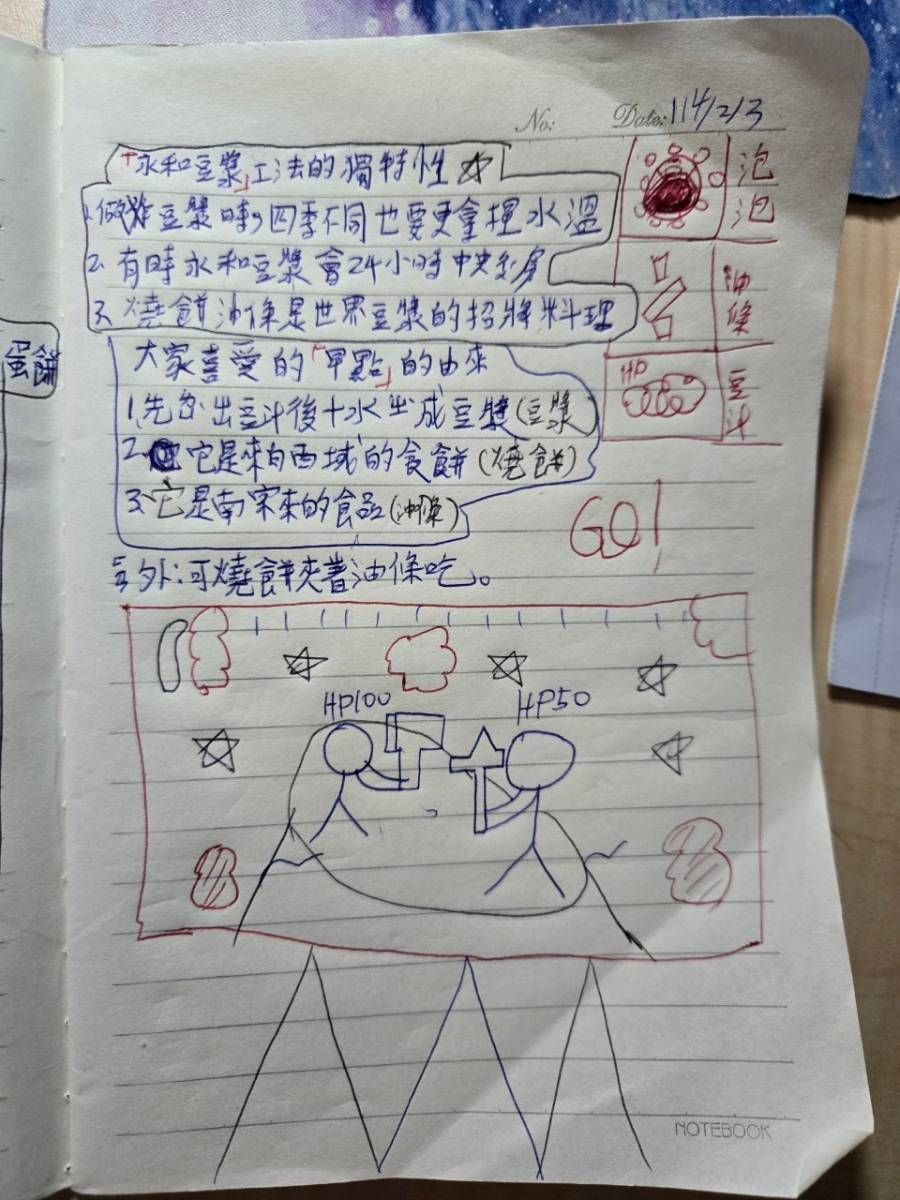 No:
Date: 114/2/3
「永和豆漿」工法的獨特性
1. 做豆漿時,四季不同也要更拿捏水溫
2. 有時永和豆漿會24小時中央
3. 燒餅油條是世界豆漿的招牌料理
大家喜愛的「早點」的由來
1. 先 出豆汁後十水 成豆漿(豆漿)
2. 它是來自西域的食餅(燒餅)
3. 它是南宋來的食品(油條)
另外:可燒餅夾著油條吃。
泡泡
油條
HP
豆汁
蛋餅
GO!
HP100
HP50
NOTEBOOK